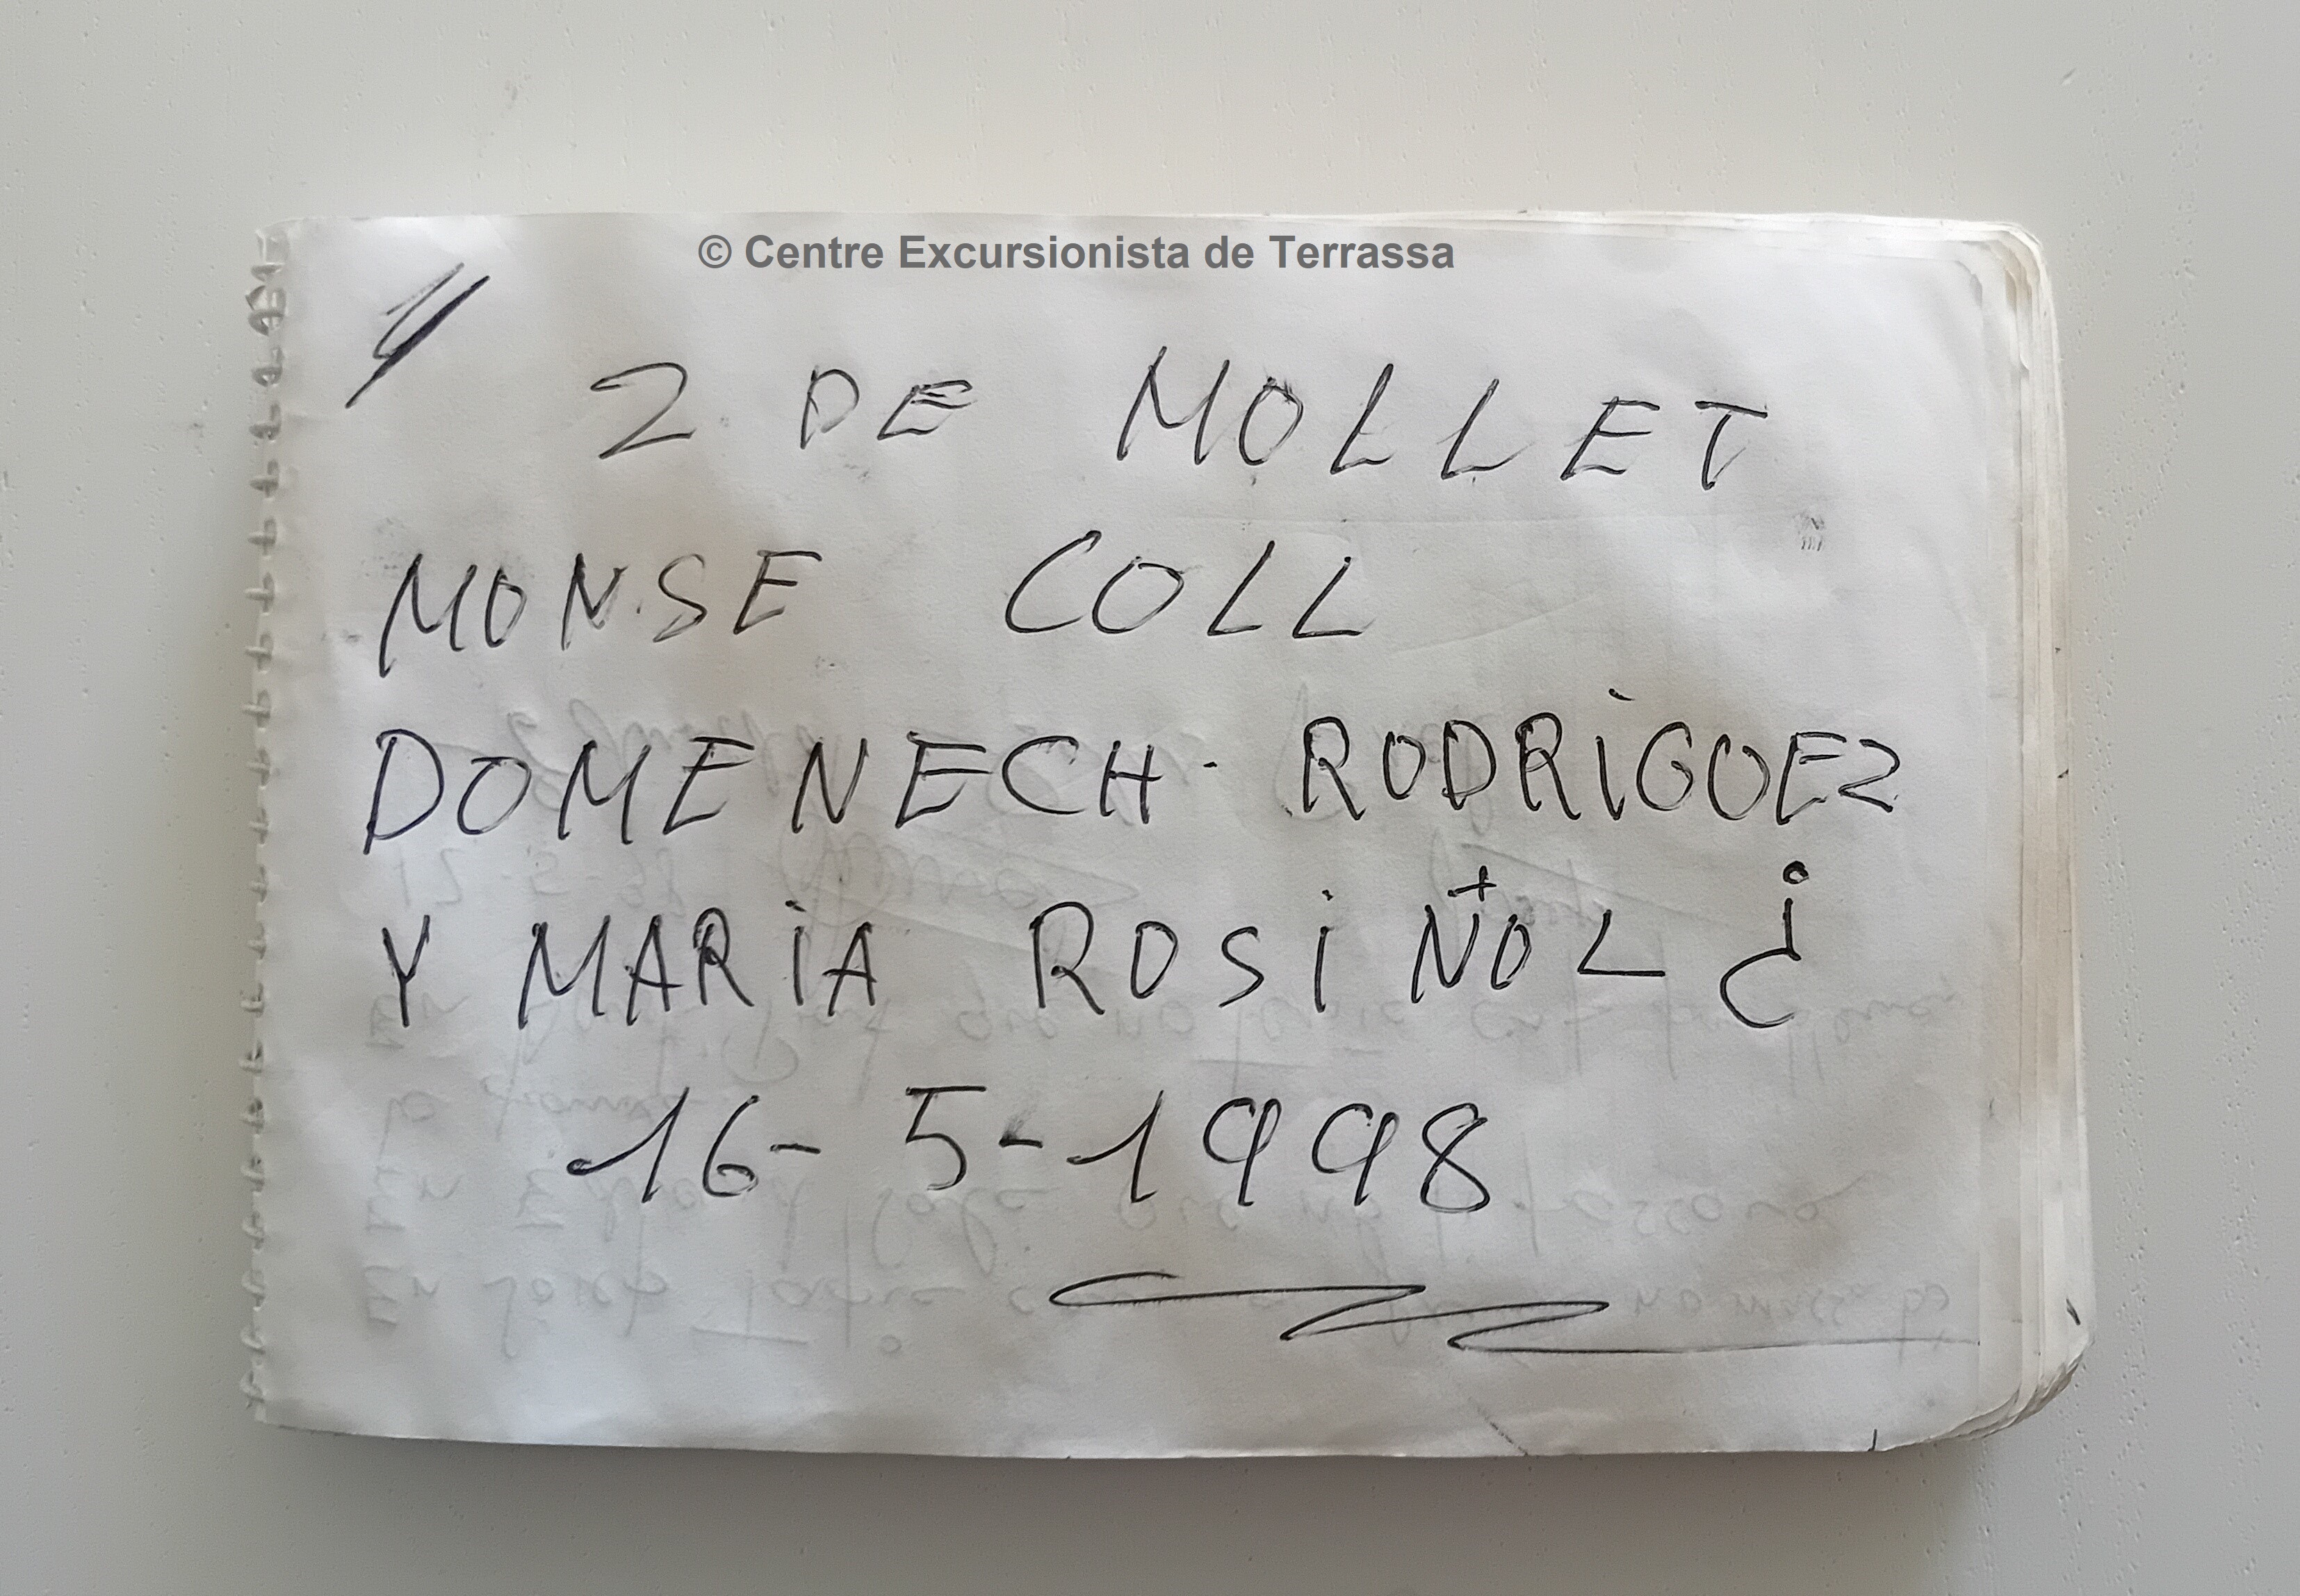 © Centre Excursionista de Terrassa
2 DE MOLLET
MONSE COLL
DOMENECH. RODRIGUEZ
Y MARIA ROSIÑOL ¿
16-5-1998